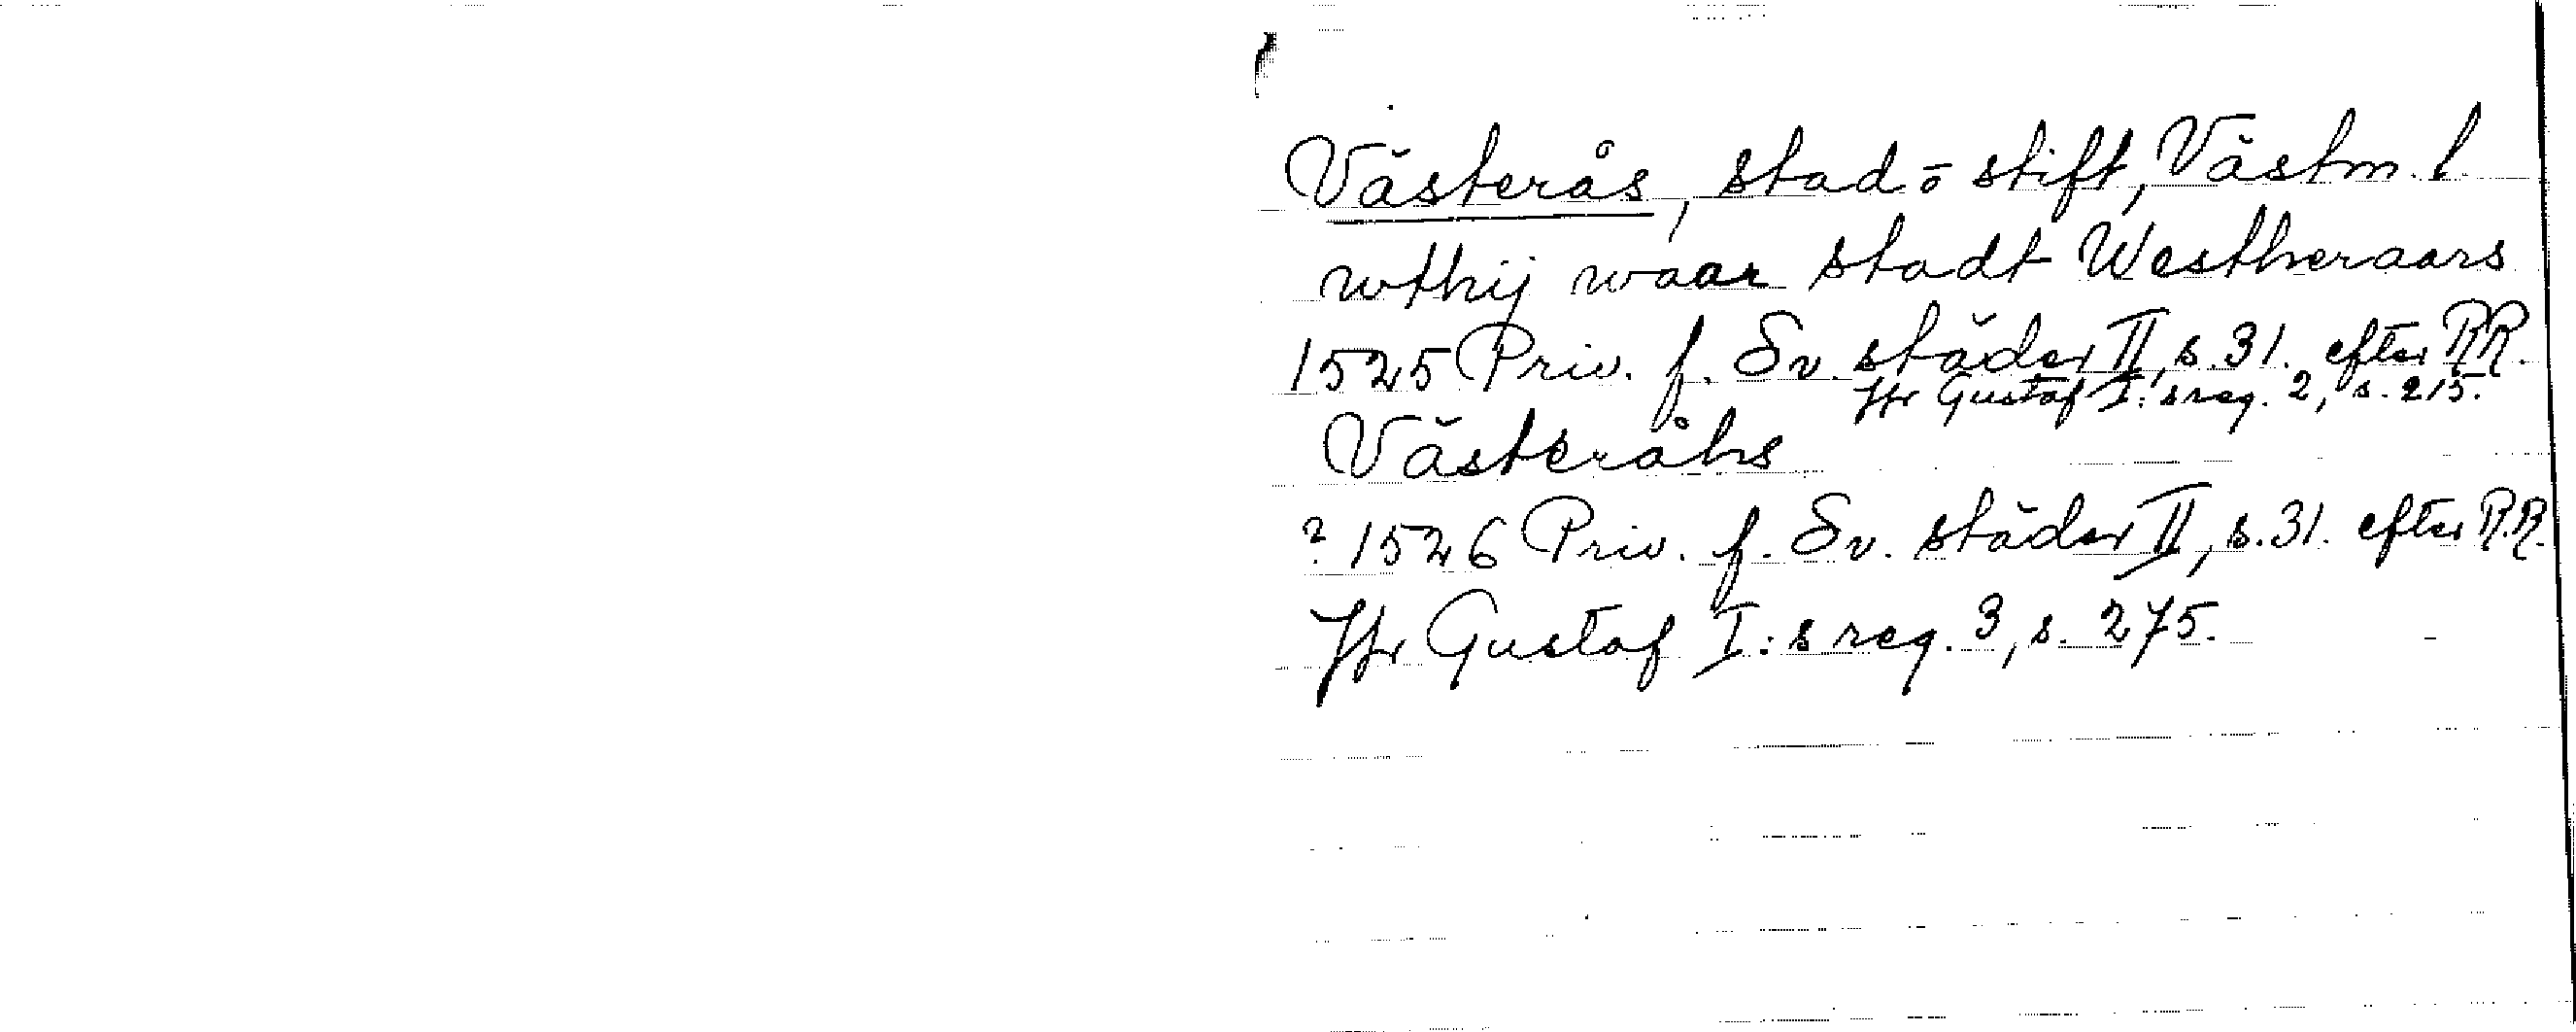 Västerås, stad o stift, Västm. l
wthij waar stadt Westheraars
1525 Priv. f. Sv. städer II, s. 31. efter RR.
Jfr Gustaf I:s reg. 2, s. 215.
Västeråhs
? 1526 Priv. f. Sv. städer II, s. 31. efter R.R.
Jfr Gustaf I:s reg. 3, s. 275.